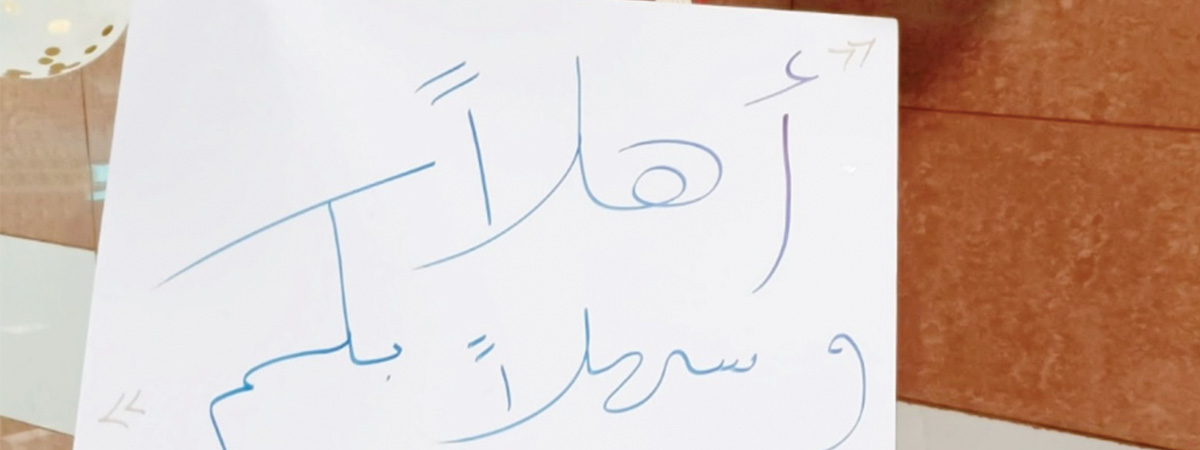 « أهلاً
و سهلاً بكم »